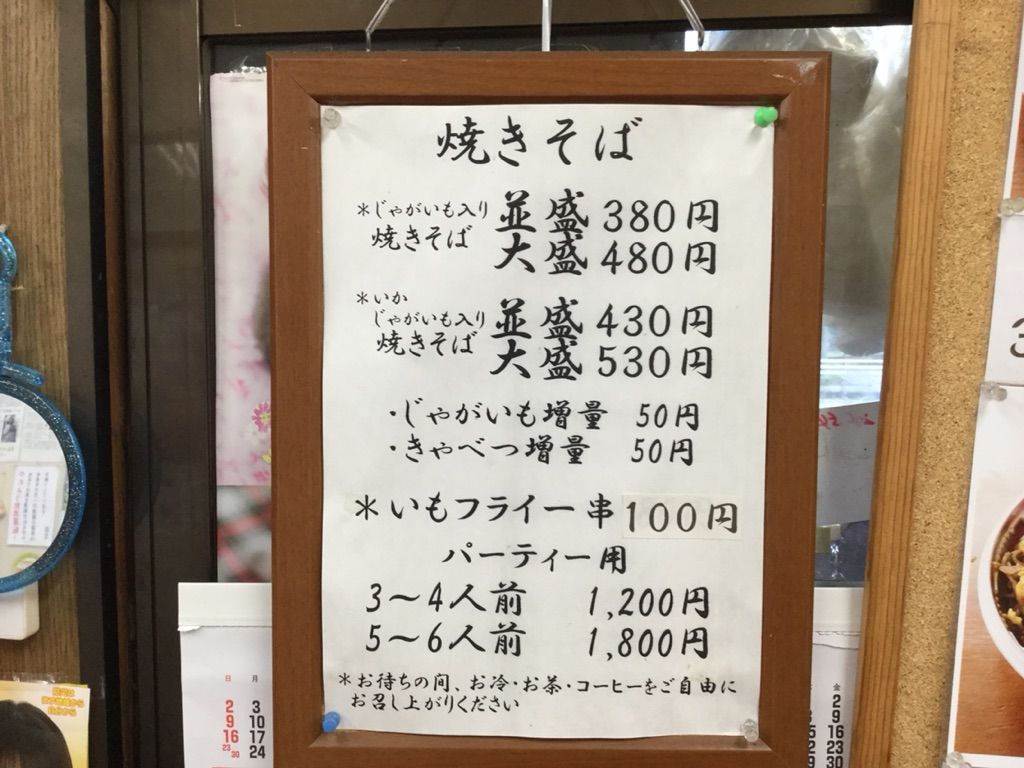 焼きそば
*じゃがいも入り 並盛 380円
焼きそば 大盛 480円
*いか
じゃがいも入り 並盛 430円
焼きそば 大盛 530円
・じゃがいも増量 50円
・きゃべつ増量 50円
*いもフライ一串 100円
パーティー用
3〜4人前 1,200円
5〜6人前 1,800円
*お待ちの間、お冷・お茶・コーヒーをご自由に
お召し上がりください
日 月
2 3
9 10
16 17
23 30 24
金
2
9
16
23
30